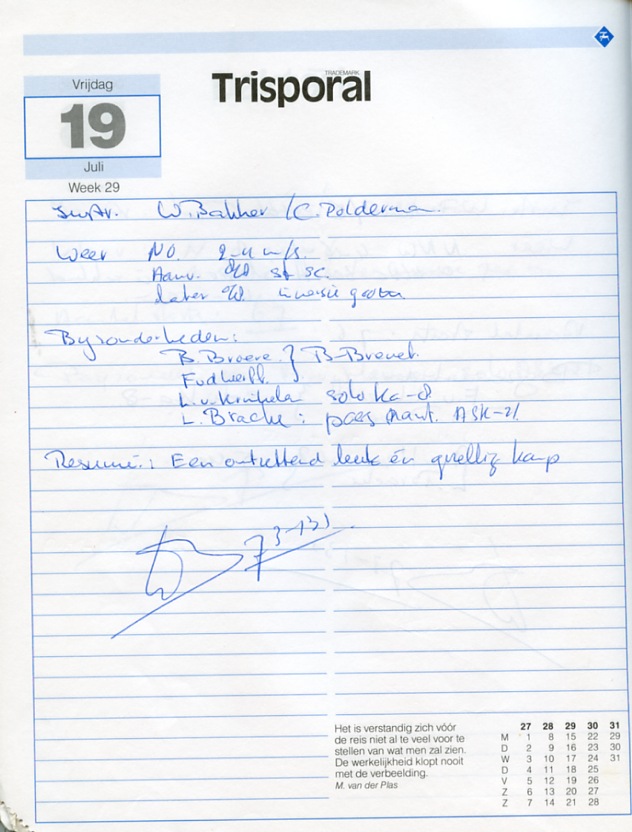 Vrijdag
19
Juli
Week 29
TRADEMARK
Trisporal
Instr. W. Bakker / C. Polderman.
Weer NO. 2-4 m/s.
Aanv. 8/8 st sc.
later 0/8. inversie
Bijzonderheden:
B. Broere } B-Brevet.
L. v. solo Ka-8
L. Brache : pass ASK-21
Resumé: Een ontzettend leuk én gezellig kamp
Het is verstandig zich vóór
de reis niet al te veel voor te
stellen van wat men zal zien.
De werkelijkheid klopt nooit
met de verbeelding.
M. van der Plas
27 28 29 30 31
M 1 8 15 22 29
D 2 9 16 23 30
W 3 10 17 24 31
D 4 11 18 25
V 5 12 19 26
Z 6 13 20 27
Z 7 14 21 28